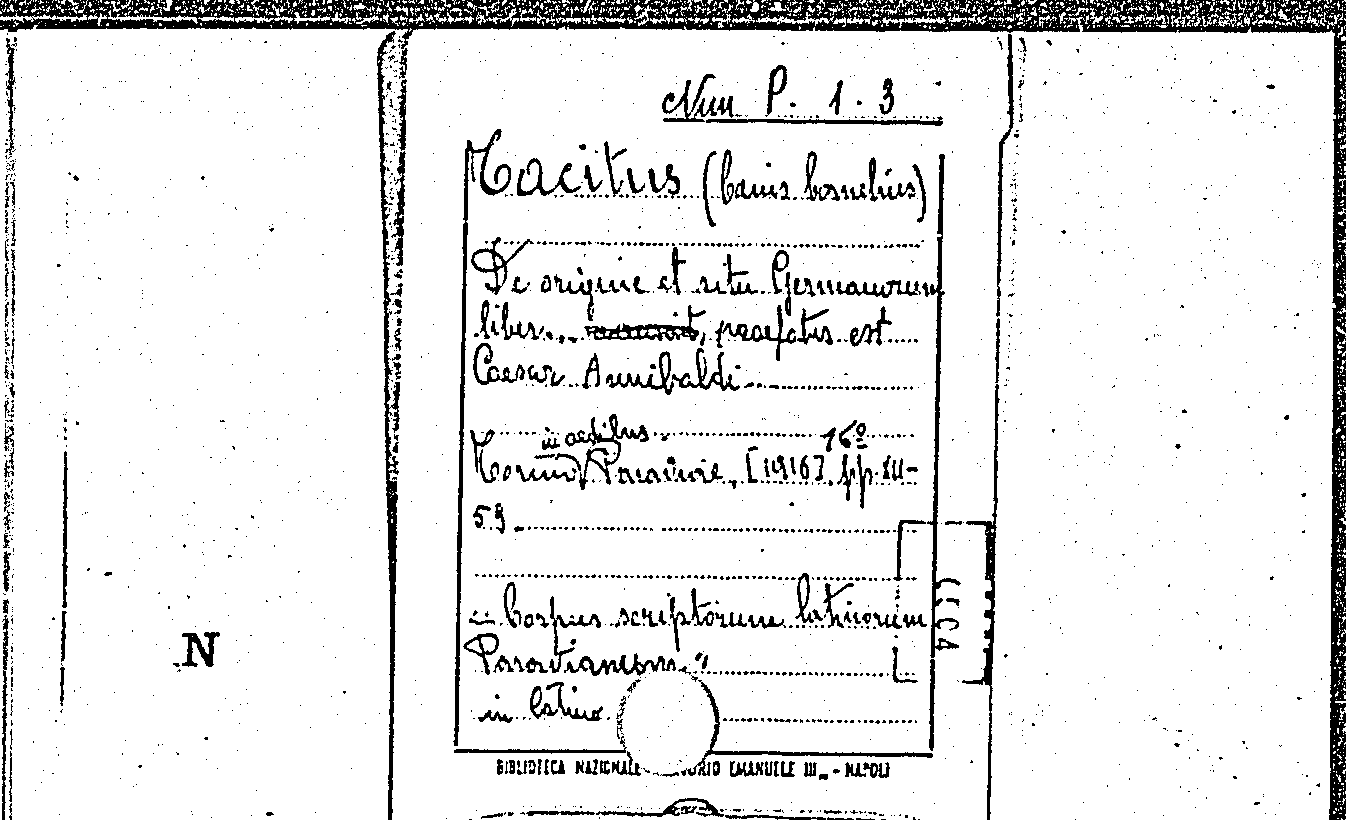 Nun P. 1. 3
Tacitus (Caius Cornelius)
De origine et situ Germanorum
liber... praefatus est
Caesar Annibaldi
in aedibus 16º
Torino Paraviae, [1916] pp. III-
59.
"Corpus scriptorum latinorum
Paravianum."
in latino
BIBLIOTECA NAZIONALE EMANUELE III - NAPOLI
N